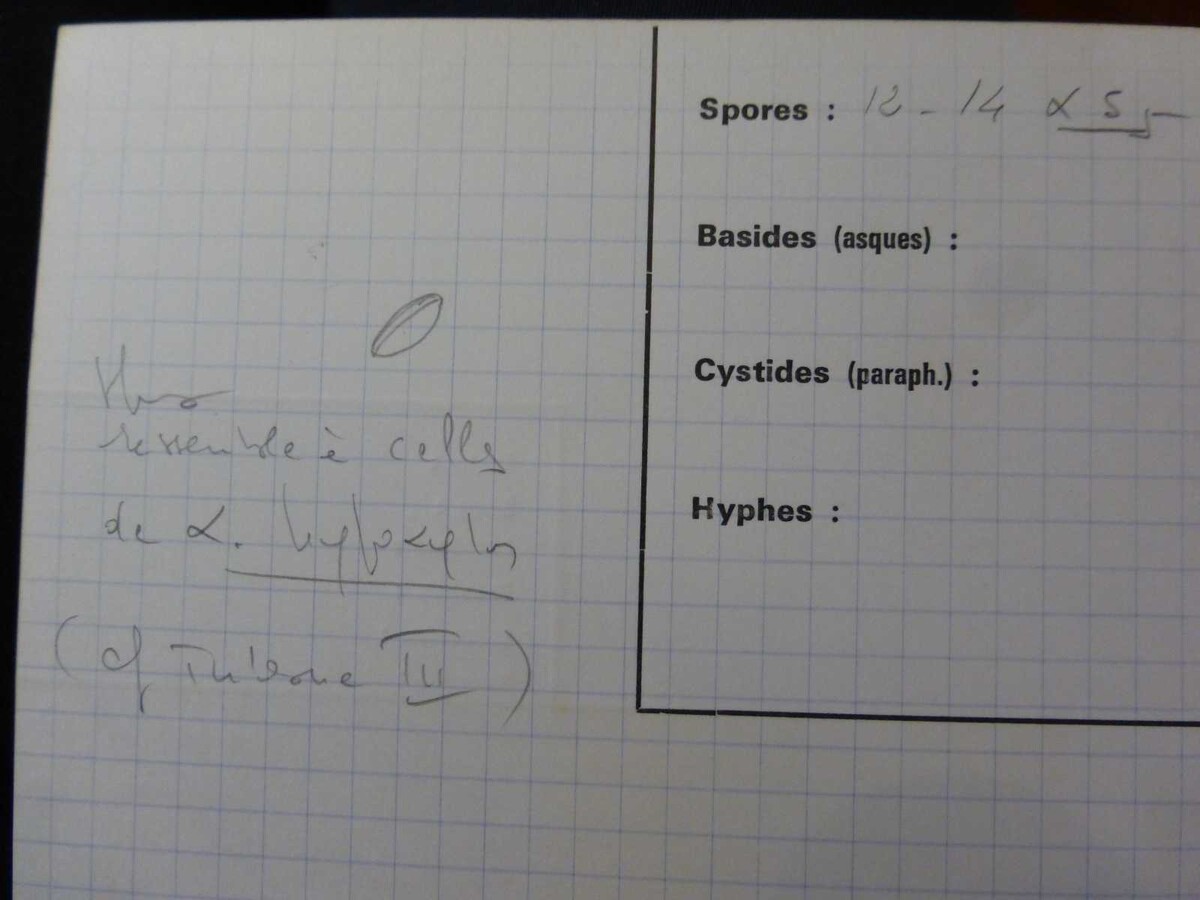 Spores : 12 - 14 x 5 µ
Basides (asques) :
Cystides (paraph.) :
Hyphes :
ressemble à celles
de X. hypoxylon
(cf III)